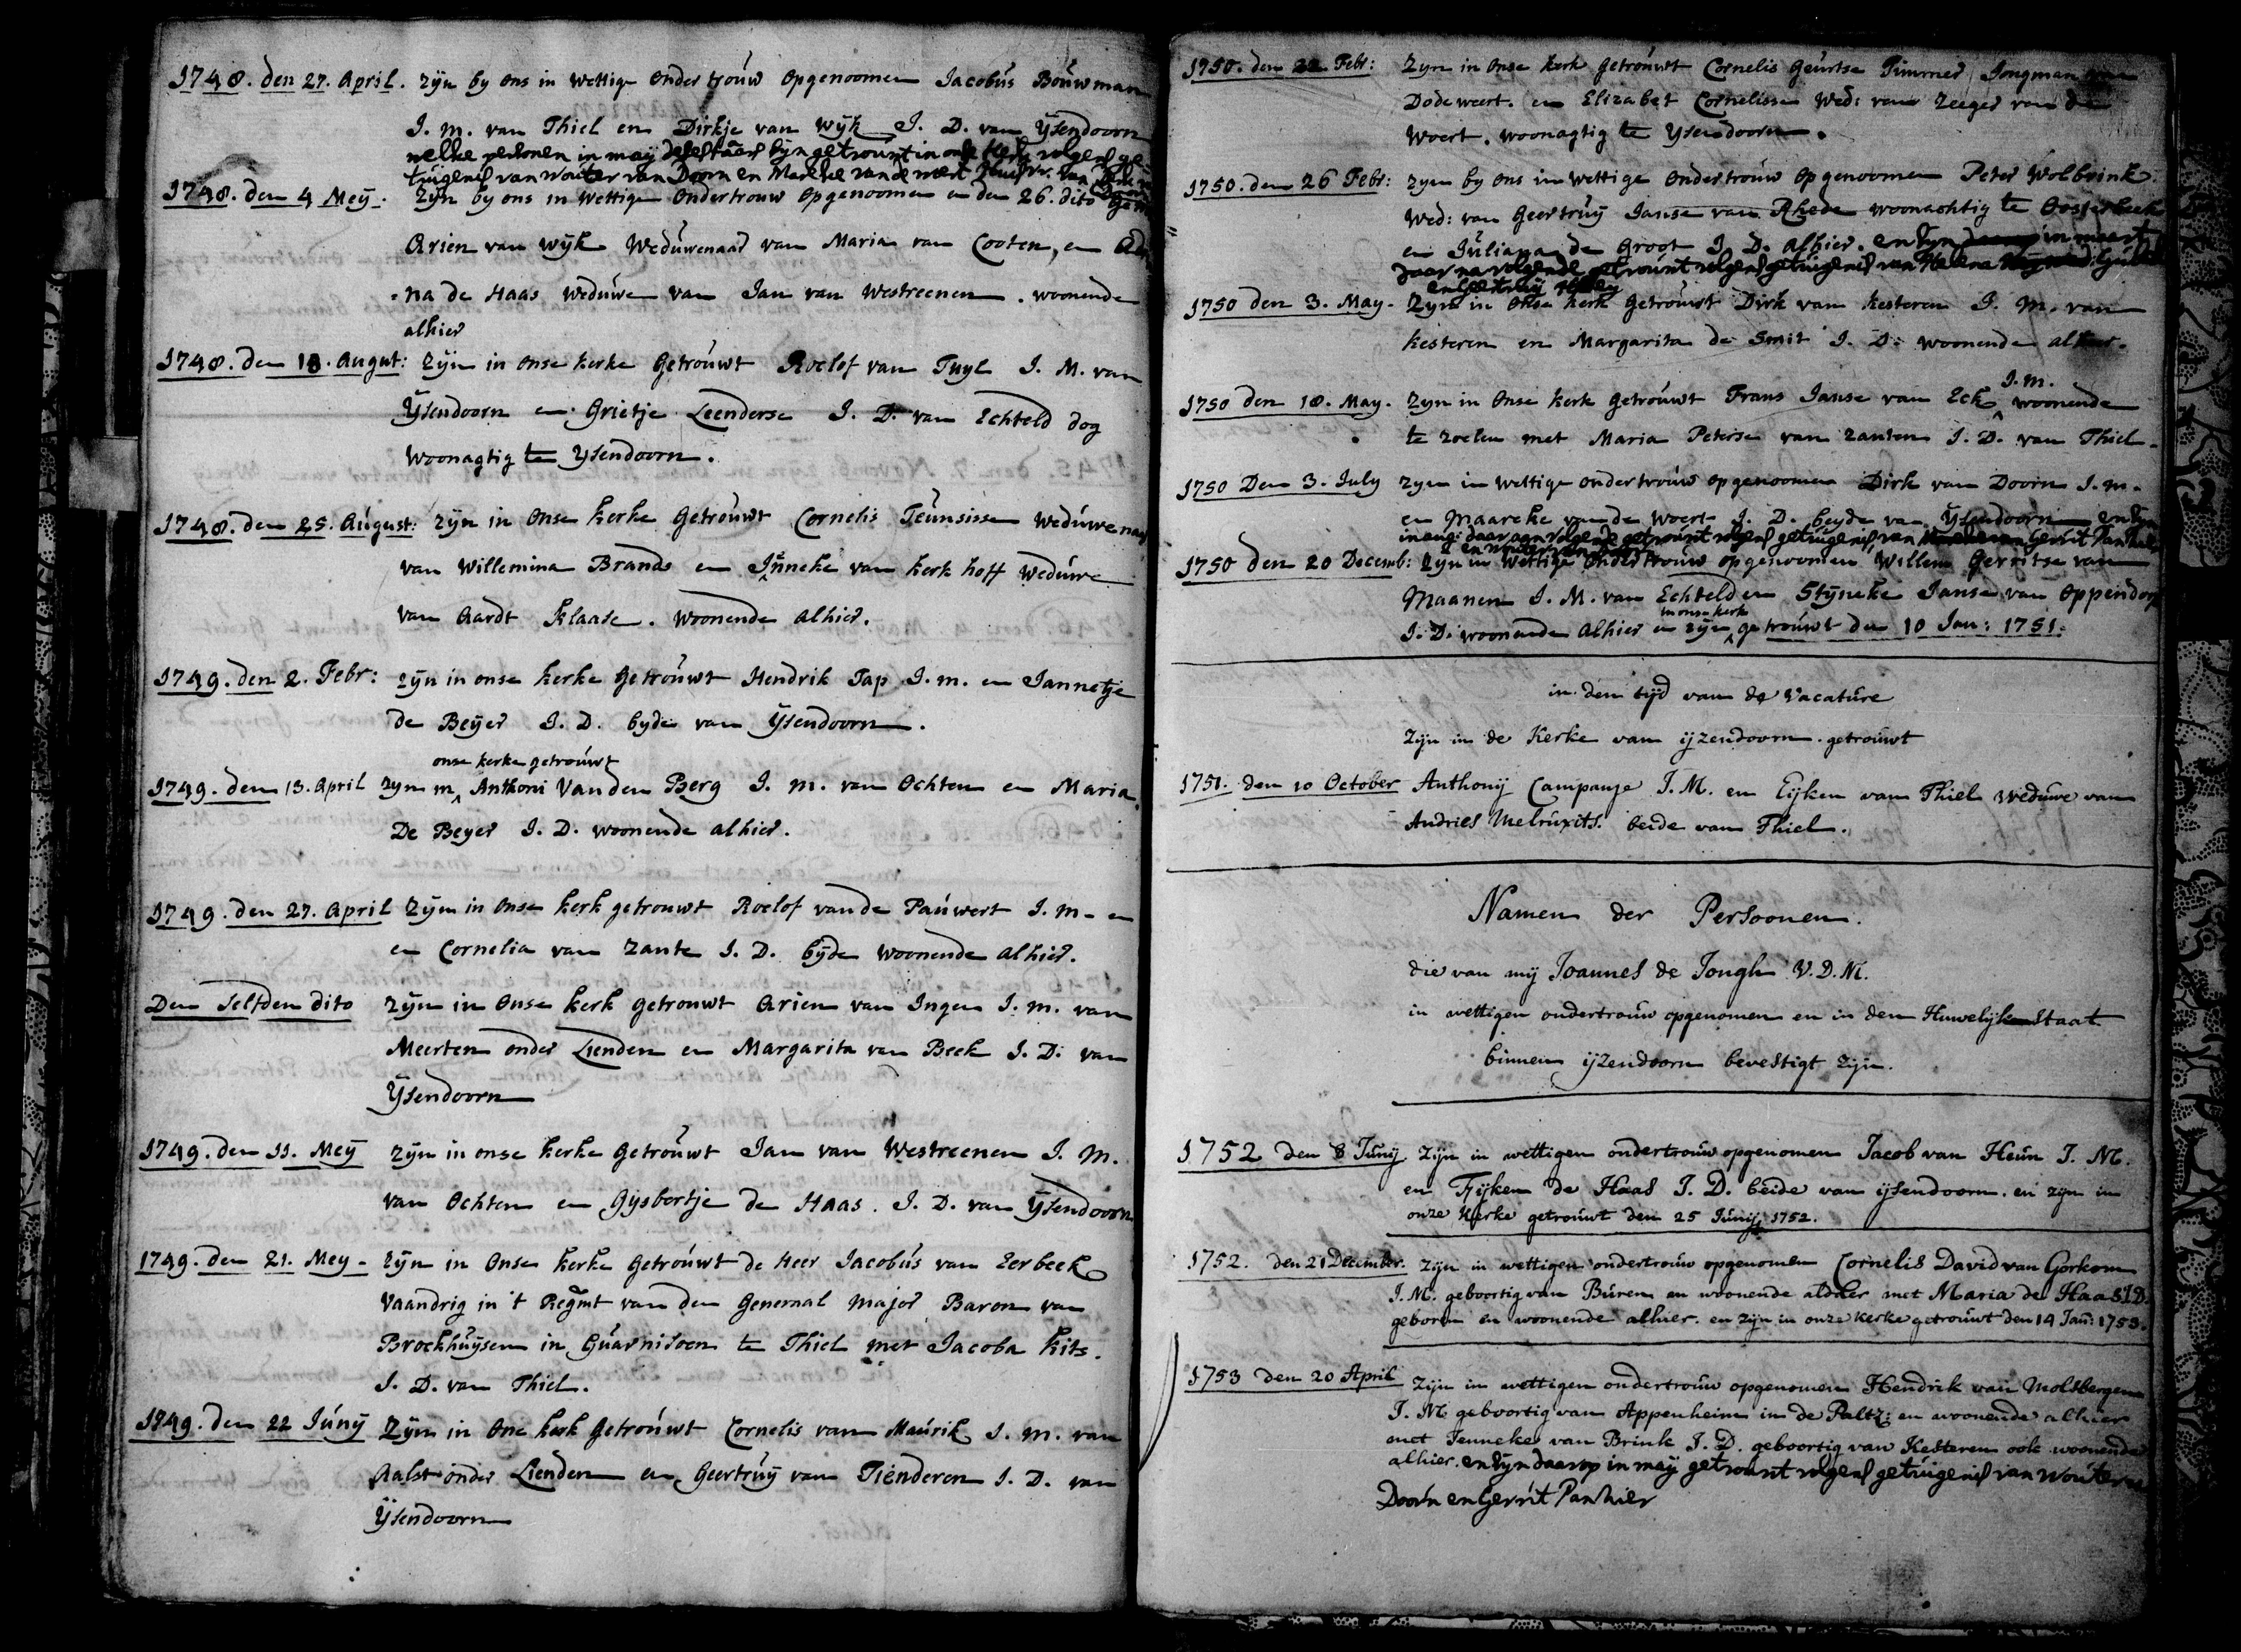 1748. den 27. April. zijn by ons in wettige ondertrouw opgenoomen Jacobus Bouwman
J. m. van Thiel en Dirkje van wijk J. D. van Ysendoorn
welke personen in maij deses Jaars sijn getrouwt in onse kerk volgens ge-
tuigenis van wouter van Doorn en Mareke van de weert
1748. den 4 Meij. zijn by ons in wettige ondertrouw opgenoomen en den 26. dito
Arien van wijk weduwenaar van Maria van Cooten, en
na de Haas weduwe van Jan van Westreenen. woonende
alhier
1748. den 18. August: zijn in onse kerke getrouwt Roelof van Tuyl J. M. van
Ysendoorn en Grietje Leenderse J. D. van Echteld dog
woonagtig te ysendoorn.
1748. den 25. August: zijn in onse kerke getrouwt Cornelis Teunsisse weduwenaar
van Willemina Brands en Jenneke van kerk hoff weduwe
van Aardt Klaase. woonende alhier.
1749. den 2. Febr: zijn in onse kerke getrouwt Hendrik Tap J. m. en Jannetje
de Beyer J. D. byde van Ysendoorn.
onse kerke getrouwt
1749. den 13. April zyn in Anthoni Vanden Berg J. m. van Ochten en Maria
De Beyer J. D. woonende alhier.
1749. den 27. April zijn in onse kerk getrouwt Roelof vande Pauwert J. m. en
en Cornelia van Zante J. D. byde woonende alhier.
Den selfden dito zijn in onse kerk getrouwt Arien van Ingen J. m. van
Meerten onder Lienden en Margarita van Beek J. D. van
Ysendoorn
1749. den 11. Meij zijn in onse kerke getrouwt Jan van Westreenen J. M.
van Ochten en Gysbertje de Haas. J. D. van Ysendoorn
1749. den 21. Mey. zijn in onse kerke getrouwt de Heer Jacobus van Eerbeek
vaandrig in 't Regmt van den Generaal Major Baron van
Brockhuysen in Guarnisoen te Thiel met Jacoba kits.
J. D. van Thiel.
1749. den 22 Junij zijn in onse kerk getrouwt Cornelis van Maurik J. m. van
Aalst onder Lienden en Geertruij van Tienderen J. D. van
Ysendoorn
1750. den 22. Febr: zyn in onse kerk getrouwt Cornelis Geurtse Timmer Jongman van
Dodeweert. en Elizabet Cornelisse Wed: van Zeeger van de
Woert. woonagtig te ysendoorn.
1750. den 26 Febr: zyn by ons in wettige ondertrouw opgenoomen Peter Wolbrink
Wed: van Geertruij Janse van Rhede woonachtig te Oosterbeek
en Juliana de Groot J. D. alhier. en sijn in meert
daar na volgende getrouwt volgens getuigenis van Helena
en Geertruij
1750 den 3. May. zyn in onse kerk getrouwt Dirk van kesteren J. m. van
kesteren en Margarita de Smit J. D. woonende alhier.
J. m.
1750 den 18. May. zyn in onse kerk getrouwt Frans Janse van Eck woonende
te zoelen met Maria Peterse van zanten J. D. van Thiel.
1750 Den 3. July zyn in wettige ondertrouw opgenoomen Dirk van Doorn J. m.
en Maareke van de Woert J. D. beyde van Ysendoorn en sijn
in aug: daar aan volgende getrouwt volgens getuigenis van Gerrit Panhier
en wouter van Doorn
1750 den 20 Decemb: zyn in wettige ondertrouw opgenoomen Willem Gerritse van
Maanen J. M. van Echteld en Styneke Janse van Oppendorp
in onse kerk
J. D. woonende alhier en zijn getrouwt den 10 Jan: 1751.
in den tijd van de Vacature
zijn in de Kerke van ijzendoorn. getrouwt
1751. den 10 October Anthonij Campanje J. M. en Eijken van Thiel weduwe van
Andries beide van Thiel.
Namen der Persoonen.
die van mij Joannes de Jongh V. D. M.
in wettigen ondertrouw opgenomen en in den Huwelijken Staat
binnen ijzendoorn bevestigt zijn.
1752 den 8 Junij zijn in wettigen ondertrouw opgenomen Jacob van Heun J. M.
en Fijken de Haas J. D. beide van ijsendoorn. en zijn in
onze Kerke getrouwt den 25 Junij 1752.
1752. den 21 December. zijn in wettigen ondertrouw opgenomen Cornelis David van Gorkom
J. M. geboortig van Buren en woonende aldaer met Maria de Haas J D.
geboren en woonende alhier. en zijn in onze Kerke getrouwt den 14 Jan: 1753.
1753 den 20 April zijn in wettigen ondertrouw opgenomen Hendrik van Molsbergen
J. M. geboortig van Appenheim in de Paltz: en woonende alhier
met Jenneke van Brink J. D. geboortig van Kesteren ook woonende
alhier. en sijn daarop in maij getrouwt volgens getuigenis van wouter van
Doorn en Gerrit Panhier